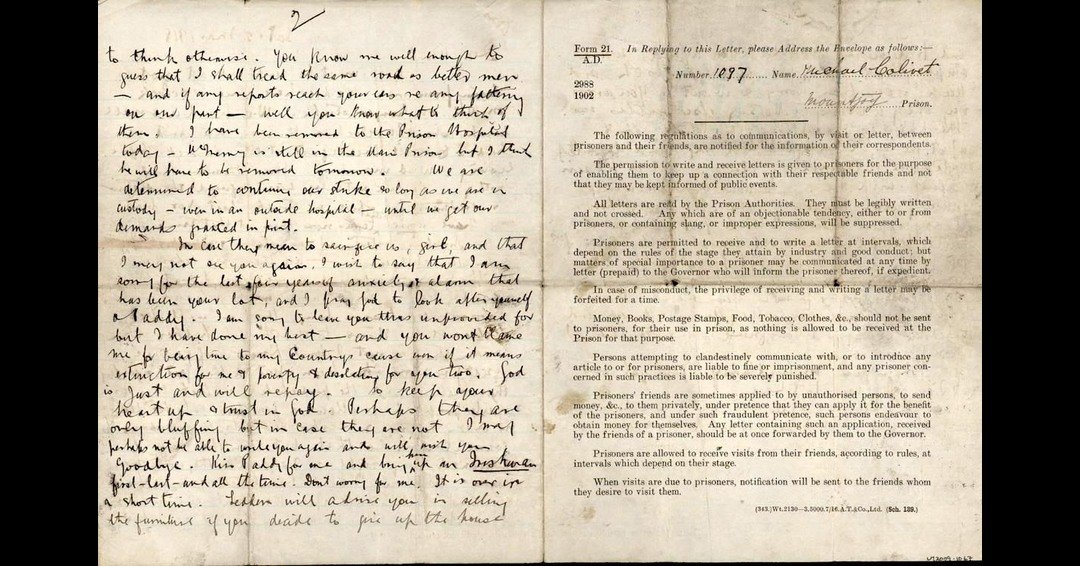 2
to think otherwise. You know me well enough to
guess that I shall tread the same road as better men
– and if any reports reach your ears re any faltering
on our part – well you know what to think of
them. I have been removed to the Prison Hospital
today – is still in the Main Prison but I think
he will have to be removed tomorrow. We are
determined to continue our strike so long as we are in
custody – even in an outside hospital – until we get our
demands granted in print.
In case they mean to sacrifice us, girl, and that
I may not see you again, I wish to say that I am
sorry for the last four years of anxiety & alarm that
has been your lot, and I pray God to look after yourself
& Paddy. I am sorry to leave you thus unprovided for
but I have done my best – and you wont blame
me for being true to my Countrys cause even if it means
extinction for me & poverty & desolation for you two. God
is Just and will repay. So keep your
heart up & trust in God. Perhaps they are
only bluffing but in case they are not I may
perhaps not be able to write you again and will wish you
Goodbye. Kiss Paddy for me and bring him up an Irishman
first – last – and all the time. Dont worry for me. It is over in
a short time. will advise you in selling
the furniture if you decide to give up the house
Form 21. In Replying to this Letter, please Address the Envelope as follows:—
A.D.
Number 1097 Name Michael Colivet
2988
1902
Mountjoy Prison.
The following regulations as to communications, by visit or letter, between
prisoners and their friends, are notified for the information of their correspondents.
The permission to write and receive letters is given to prisoners for the purpose
of enabling them to keep up a connection with their respectable friends and not
that they may be kept informed of public events.
All letters are read by the Prison Authorities. They must be legibly written
and not crossed. Any which are of an objectionable tendency, either to or from
prisoners, or containing slang, or improper expressions, will be suppressed.
Prisoners are permitted to receive and to write a letter at intervals, which
depend on the rules of the stage they attain by industry and good conduct; but
matters of special importance to a prisoner may be communicated at any time by
letter (prepaid) to the Governor who will inform the prisoner thereof, if expedient.
In case of misconduct, the privilege of receiving and writing a letter may be
forfeited for a time.
Money, Books, Postage Stamps, Food, Tobacco, Clothes, &c., should not be sent
to prisoners, for their use in prison, as nothing is allowed to be received at the
Prison for that purpose.
Persons attempting to clandestinely communicate with, or to introduce any
article to or for prisoners, are liable to fine or imprisonment, and any prisoner con-
cerned in such practices is liable to be severely punished.
Prisoners' friends are sometimes applied to by unauthorised persons, to send
money, &c., to them privately, under pretence that they can apply it for the benefit
of the prisoners, and under such fraudulent pretence, such persons endeavour to
obtain money for themselves. Any letter containing such an application, received
by the friends of a prisoner, should be at once forwarded by them to the Governor.
Prisoners are allowed to receive visits from their friends, according to rules, at
intervals which depend on their stage.
When visits are due to prisoners, notification will be sent to the friends whom
they desire to visit them.
(343.)Wt.2130—3,5000.7/16.A.T.&Co.,Ltd. (Sch. 139.)